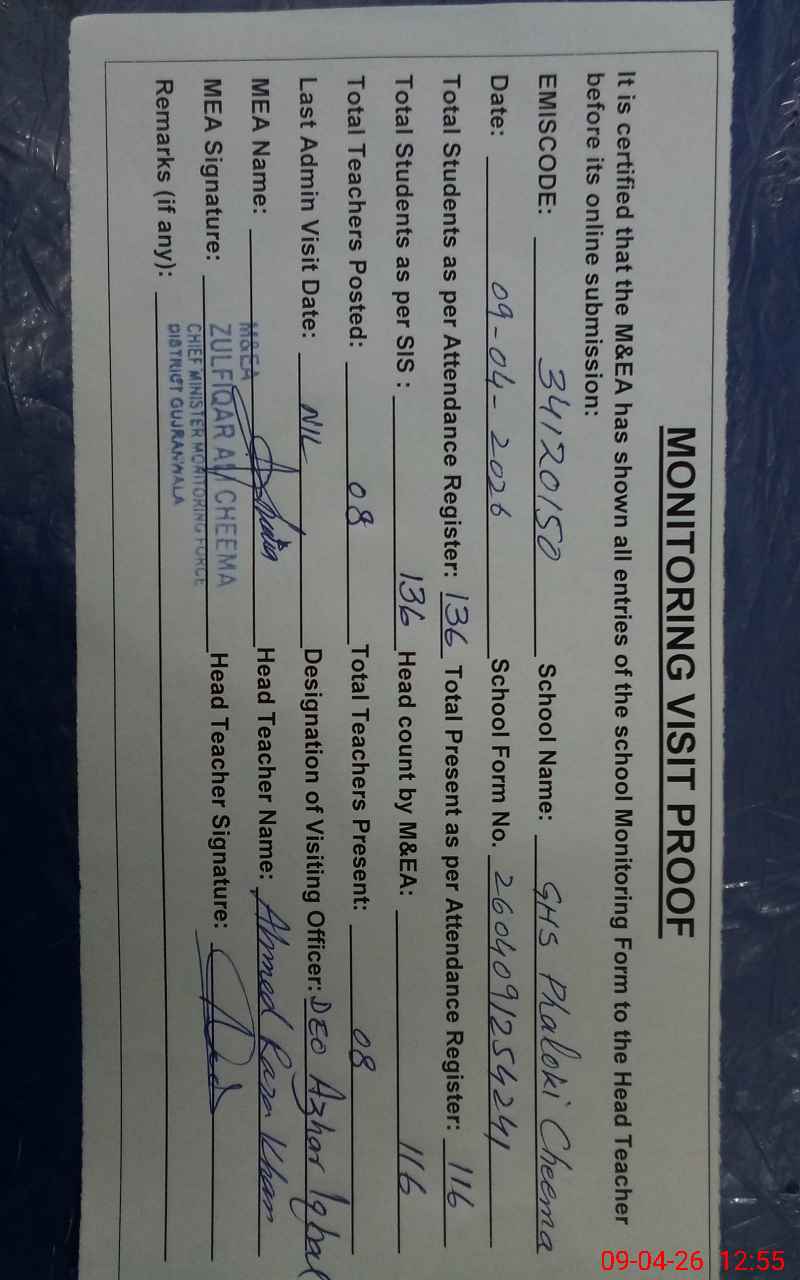 MONITORING VISIT PROOF
It is certified that the M&EA has shown all entries of the school Monitoring Form to the Head Teacher
before its online submission:
EMISCODE: 34120150 School Name: GHS Phaloki Cheema
Date: 09-04-2026 School Form No. 2604091254241
Total Students as per Attendance Register: 136 Total Present as per Attendance Register: 116
Total Students as per SIS : 136 Head count by M&EA: 116
Total Teachers Posted: 08 Total Teachers Present: 08
Last Admin Visit Date: NIL Designation of Visiting Officer: DEO Azhar Iqbal
MEA Name: Head Teacher Name: Ahmed Raza Khan
MEA Signature: Head Teacher Signature:
M&EA
ZULFIQAR ALI CHEEMA
CHIEF MINISTER MONITORING FORCE
DISTRICT GUJRANWALA
Remarks (if any):
09-04-26 12:55